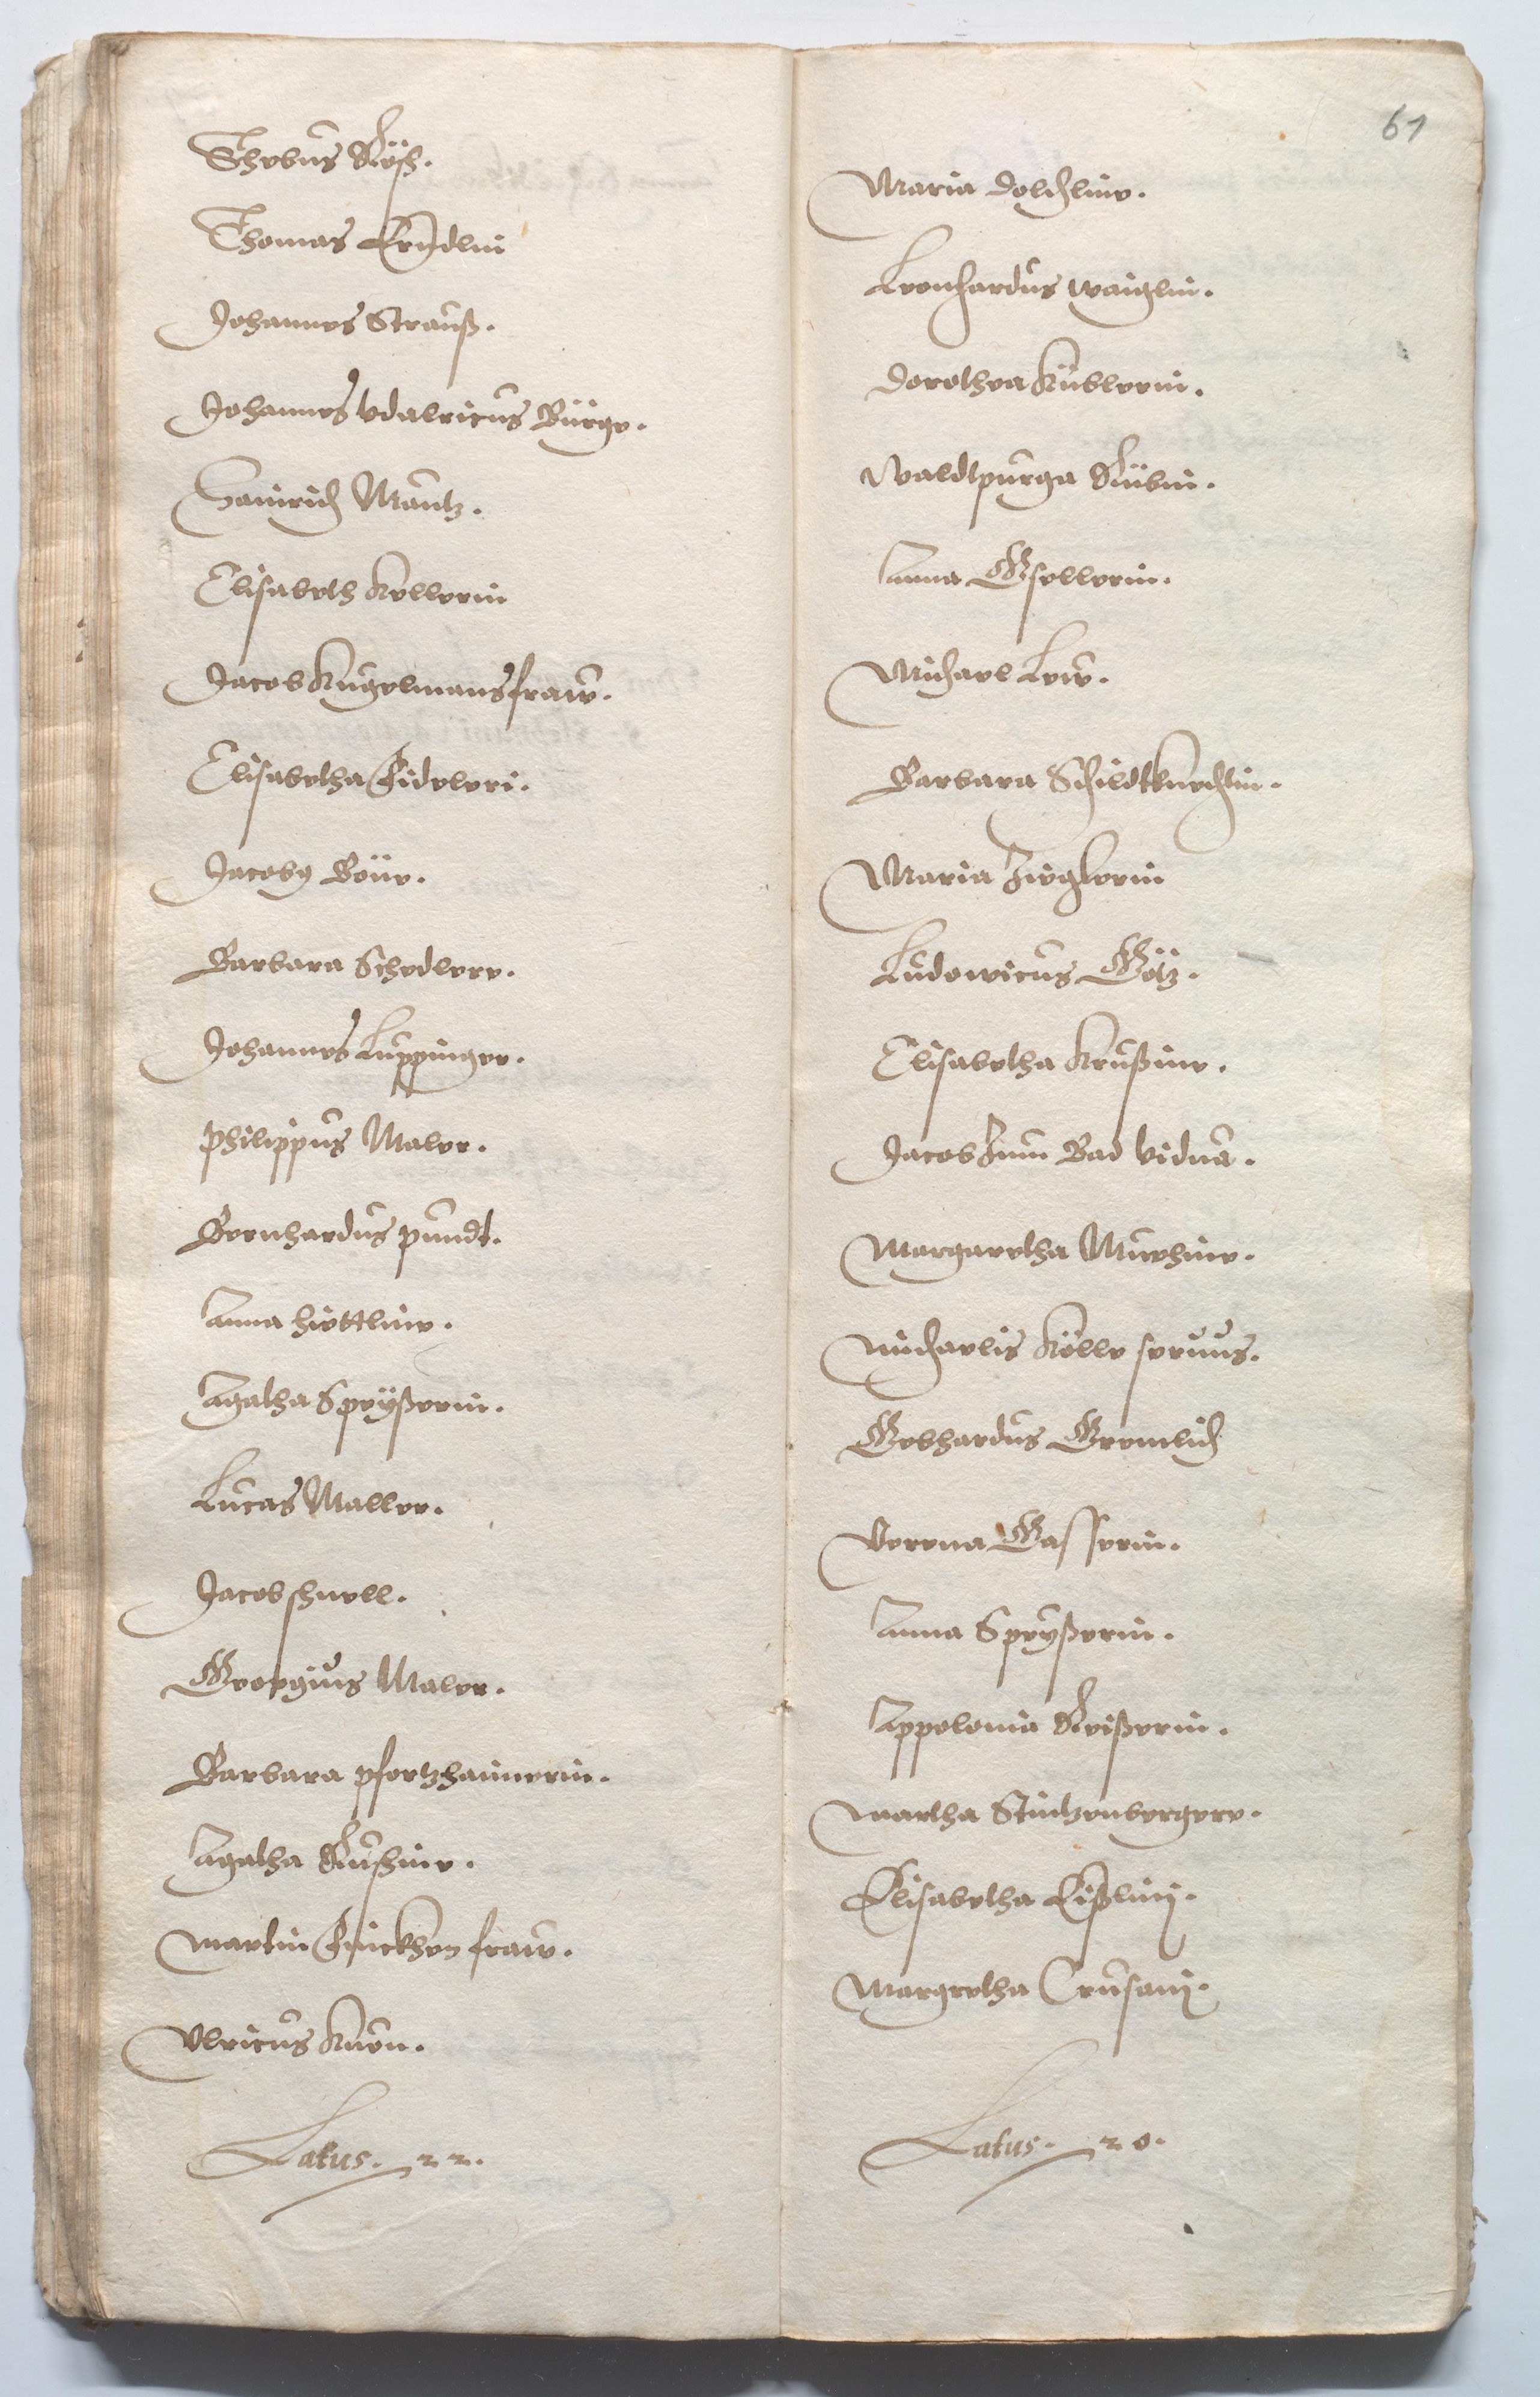 Thebus Rösch.
Thomas Brÿdlin
Johannes Strauß.
Johannes Vdalricus Bürge.
Hainrich Mantz.
Elisabeth Kellerin
Jacob Kugelmans fraw.
Elisabetha Fideleri.
Jacobg Böüe.
Barbara Schedlere.
Johannes Luppinger.
Philippus Maler.
Bernhardus pundt.
Anna hirttline.
Agatha Speÿßerin.
Lucas Maller.
Jacob schnell.
Georgius Maler.
Barbara pfortzhaimerin.
Agatha Rushine.
Martin Finckhen fraw.
Vlricus Knön.
Latus. 22.
61
Maria dolchline.
Leonhardus waiglin.
Dorothea Küblerin.
Waldtpurga Rübin.
Anna Gsellerin.
Michael Lew.
Barbara Schildtknechtin.
Maria Zieglerin
Ludowicus Götz.
Elisabetha Krußine.
Jacob Zum Bad vidua.
Margaretha Murhine.
Michaelis Kölle servus.
Gebhardus Gremlich
Verena Gasserin.
Anna Speÿßerin.
Appolonia Reißerin.
Martha Stintzenbergere.
Elisabetha Eißlinj.
Margretha Crusanj.
Latus. 20.